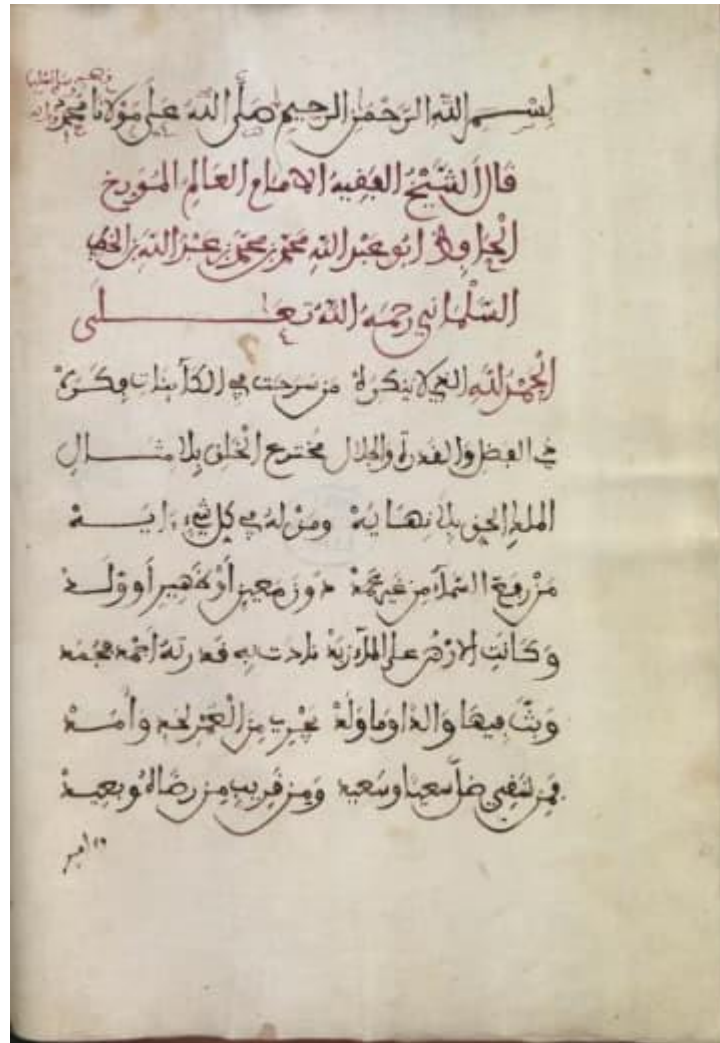 بسم الله الرحمن الرحيم صلى الله على مولانا محمد
قال الشيخ الفقيه الامام العالم المورخ
الحافظ ابو عبد الله محمد بن محمد بن عبد الله بن الخطيب
السلماني رحمه الله تعلى
الحمد لله الذي لا ينكره من سرحت في الكائنات فكره
ذي الفضل والقدرة والجلال مخترع الخلق بلا مثال
الملك الحق بلا نهايه ومن له في كل شيء ءايه
من رفع السماء من غير عمد دون معين أو ظهير أو ولد
وكانت الارض على الماء زبد نادت به قدرته
وبث فيها والدا وما ولد يجري من العمر لحد وأمد
فمن شقي ضل سعيا وسعيد ومن قريب من رضاه وبعيد